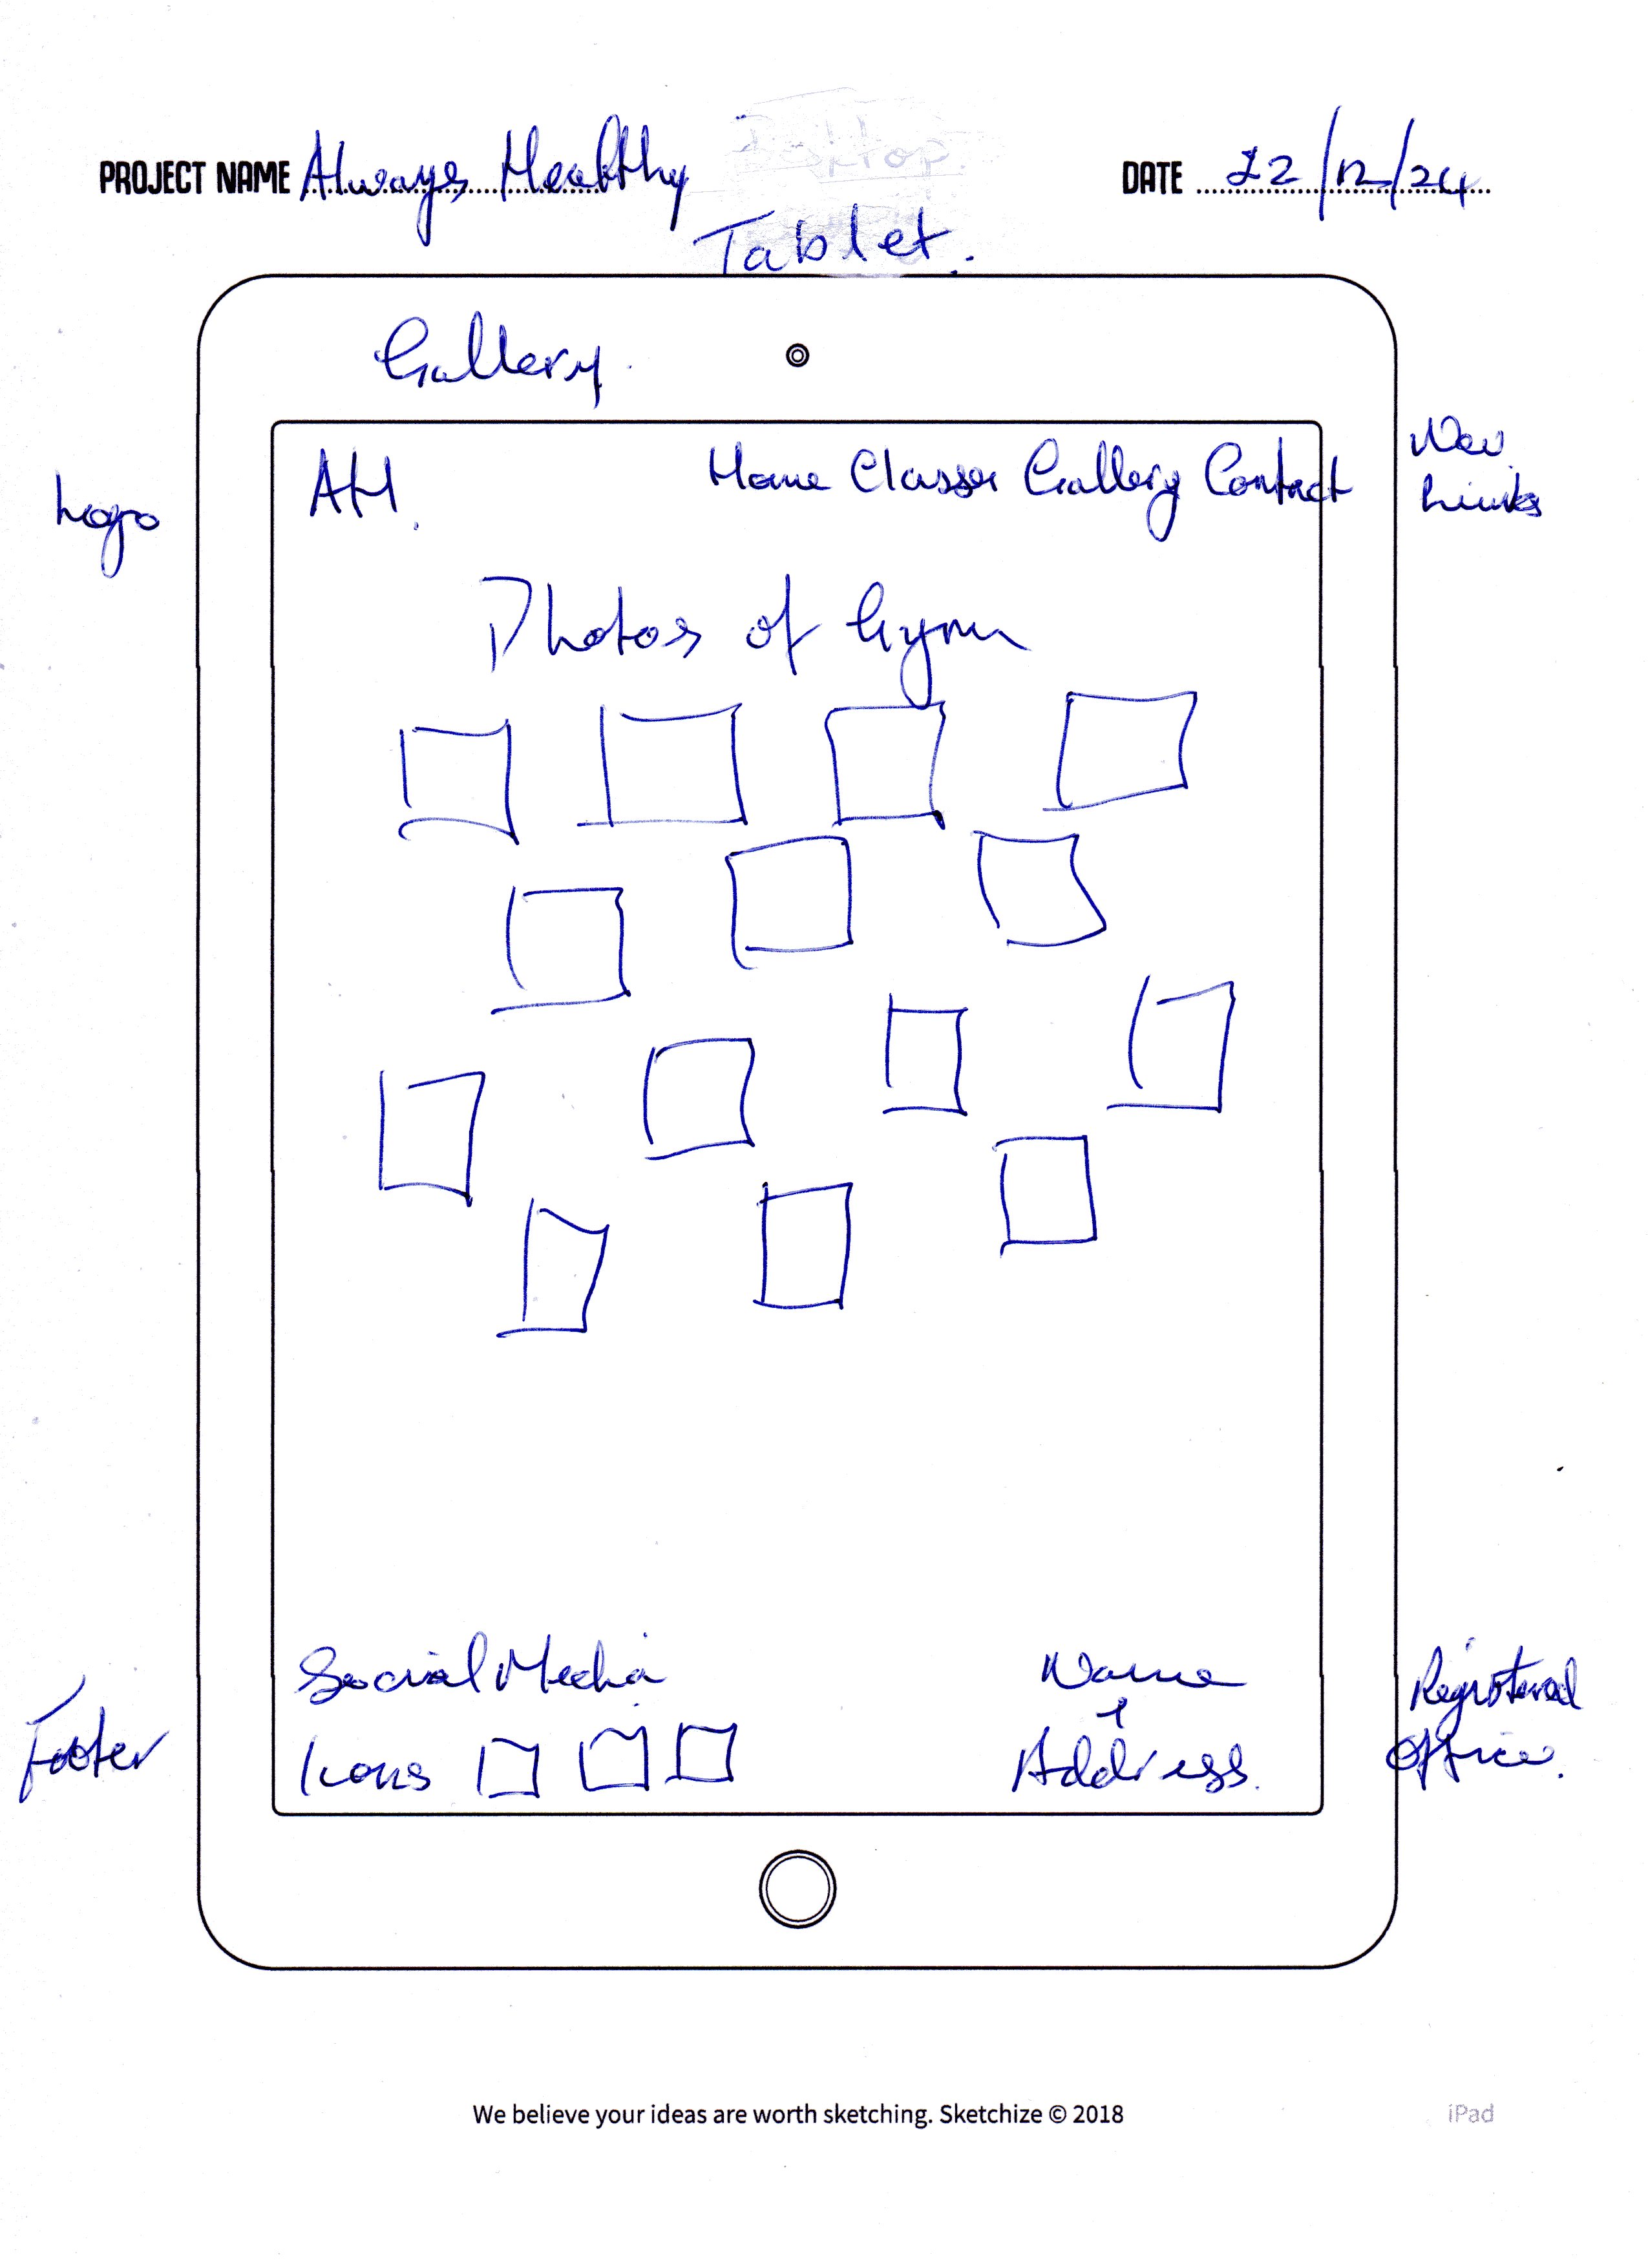 Desktop.
PROJECT NAME Always Healthy
DATE 22/12/24
Tablet.
Gallery.
Logo
AH.
Home Classes Gallery Contact
Nav.
Links
Photos of Gym
Social Media
Icons
Name
+
Address.
Footer
Registered
Office.
We believe your ideas are worth sketching. Sketchize © 2018
iPad